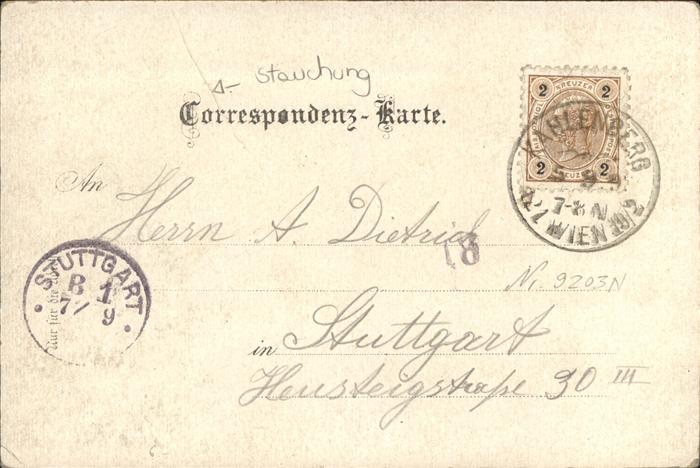 Stauchung
Correspondenz-Karte.
2 KREUZER 2
2 KREUZER 2
KAHLENBERG
7-8 N
BEI WIEN 19/2
An Herrn A. Dietrich
18
Nr. 9203N
STUTTGART
B 1
7/9
Nur für die
in Stuttgart
Heusteigstraße 30 III